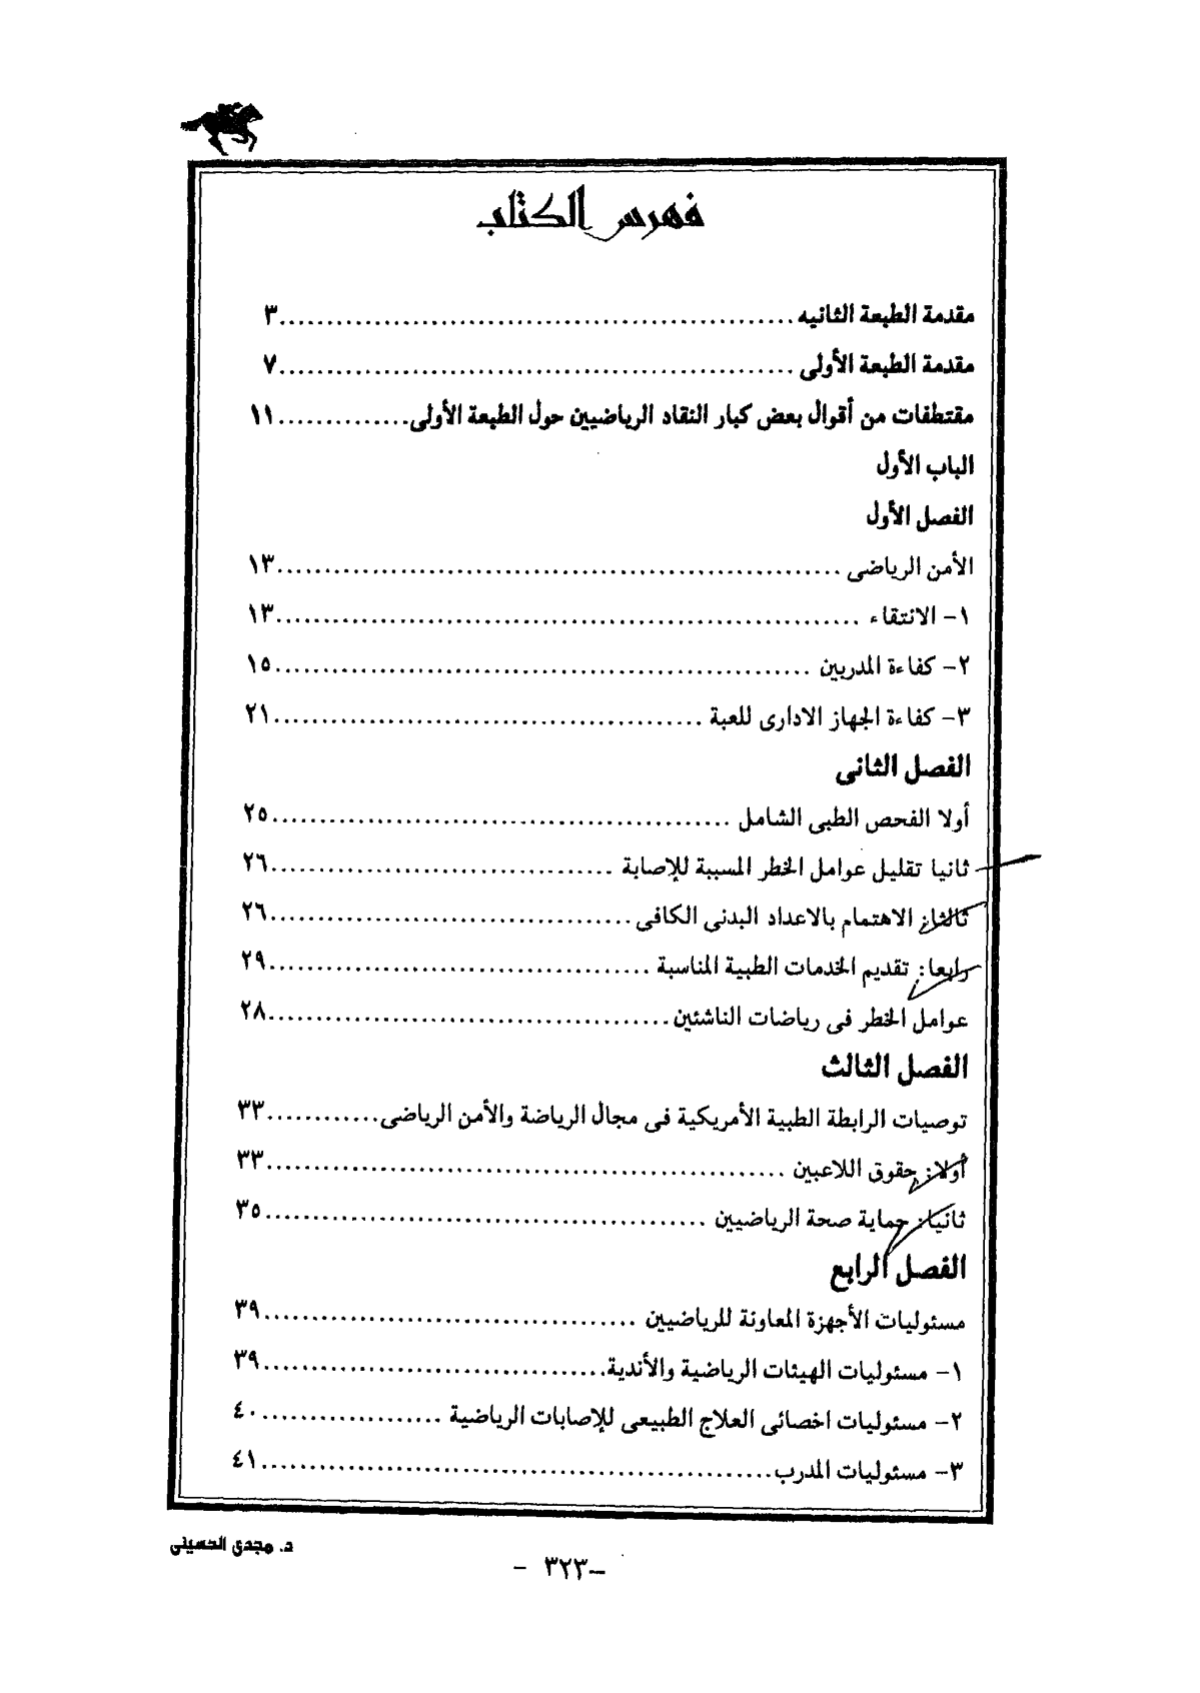 فهرس الكتاب
مقدمة الطبعة الثانيه ..... ٣
مقدمة الطبعة الأولى ..... ٧
مقتطفات من أقوال بعض كبار النقاد الرياضيين حول الطبعة الأولى ..... ١١
الباب الأول
الفصل الأول
الأمن الرياضى ..... ١٣
١- الانتقاء ..... ١٣
٢- كفاءة المدربين ..... ١٥
٣- كفاءة الجهاز الادارى للعبة ..... ٢١
الفصل الثانى
أولا الفحص الطبى الشامل ..... ٢٥
ثانيا تقليل عوامل الخطر المسببة للإصابة ..... ٢٦
ثالثا: الاهتمام بالاعداد البدنى الكافى ..... ٢٦
رابعا: تقديم الخدمات الطبية المناسبة ..... ٢٩
عوامل الخطر فى رياضات الناشئين ..... ٢٨
الفصل الثالث
توصيات الرابطة الطبية الأمريكية فى مجال الرياضة والأمن الرياضى ..... ٣٣
أولا: حقوق اللاعبين ..... ٣٣
ثانيا: حماية صحة الرياضيين ..... ٣٥
الفصل الرابع
مسئوليات الأجهزة المعاونة للرياضيين ..... ٣٩
١- مسئوليات الهيئات الرياضية والأندية ..... ٣٩
٢- مسئوليات اخصائى العلاج الطبيعى للإصابات الرياضية ..... ٤٠
٣- مسئوليات المدرب ..... ٤١
د. مجدى الحسينى
- ٣٢٣-